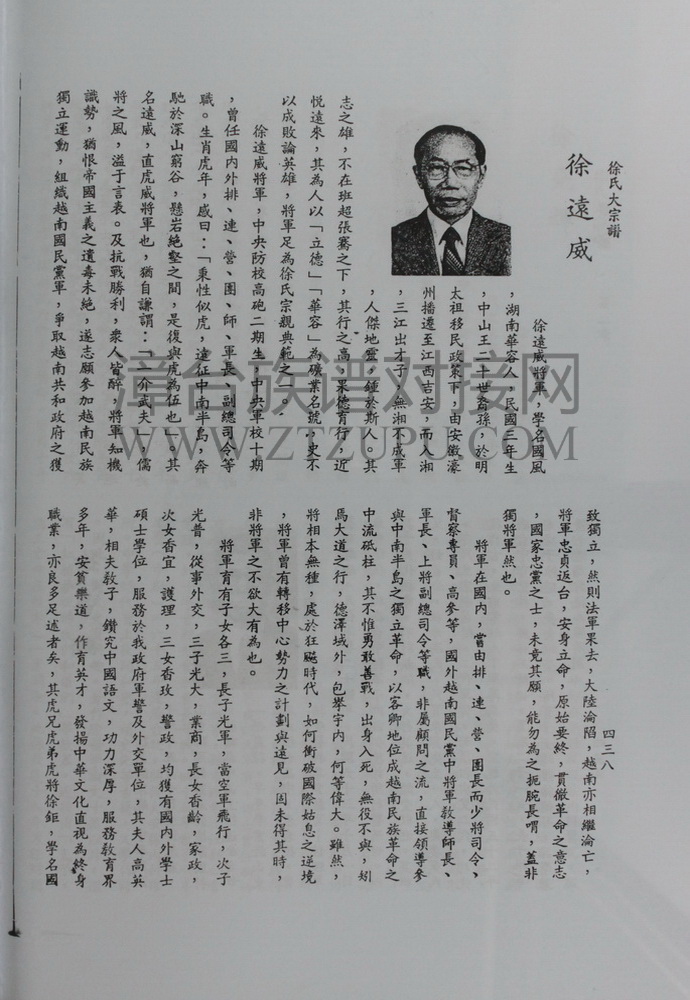 徐氏大宗譜
徐遠威
徐遠威將軍，學名國風
，湖南華容人，民國三年生
，中山王二十世裔孫，於明
太祖移民政策下，由安徽濠
州播遷至江西吉安，而入湘
，三江出才子，無湘不成軍
，人傑地靈，鍾於斯人。其
志之雄，不在班超張騫之下，其行之高，果德育行，近
悦遠來，其為人以「立德」「華容」為礦業名號，史不
以成敗論英雄，將軍足為徐氏宗親典範之一。
徐遠威將軍，中央防校高砲二期生，中央軍校十期
，曾任國內外排、連、營、團、師、軍長、副總司令等
職。生肖虎年，感曰：「秉性似虎，遠征中南半島，奔
馳於深山窮谷，懸岩絶壑之間，是復與虎為伍也」。其
名遠威，直虎威將軍也，猶自謙謂：「一介武夫」，儒
將之風，溢于言表。及抗戰勝利，衆人皆醉，將軍知機
識勢，猶恨帝國主義之遺毒未絶，遂志願參加越南民族
獨立運動，組織越南國民黨軍，爭取越南共和政府之獲
致獨立，然則法軍果去，大陸淪陷，越南亦相繼淪亡，
將軍忠貞返台，安身立命，原始要終，貫徹革命之意志
，國家忠黨之士，未竟其願，能勿為之扼腕長喟，蓋非
獨將軍然也。
將軍在國內，嘗由排、連、營、團長而少將司令、
督察專員、高參等，國外越南國民黨中將軍教導師長、
軍長、上將副總司令等職，非屬顧問之流，直接領導參
與中南半島之獨立革命，以客卿地位成越南民族革命之
中流砥柱，其不惟勇敢善戰，出身入死，無役不與，矧
馬大道之行，德澤域外，包擧宇內，何等偉大。雖然，
將相本無種，處於狂飈時代，如何衝破國際姑息之逆境
，將軍曾有轉移中心勢力之計劃與遠見，因未得其時，
非將軍之不欲大有為也。
將軍育有子女各三，長子光軍，當空軍飛行，次子
光普，從事外交，三子光大，業商，長女香齡，家政，
次女香宜，護理，三女香玫，警政，均獲有國內外學士
碩士學位，服務於我政府軍警及外交單位，其夫人高英
華，相夫敎子，鑽究中國語文，功力深厚，服務敎育界
多年，安貧樂道，作育英才，發揚中華文化直視為終身
職業，亦良多足述者矣，其虎兄虎弟虎將徐鉅，學名國
四三八
章台族谱对接网
WWW.ZTZUPU.COM